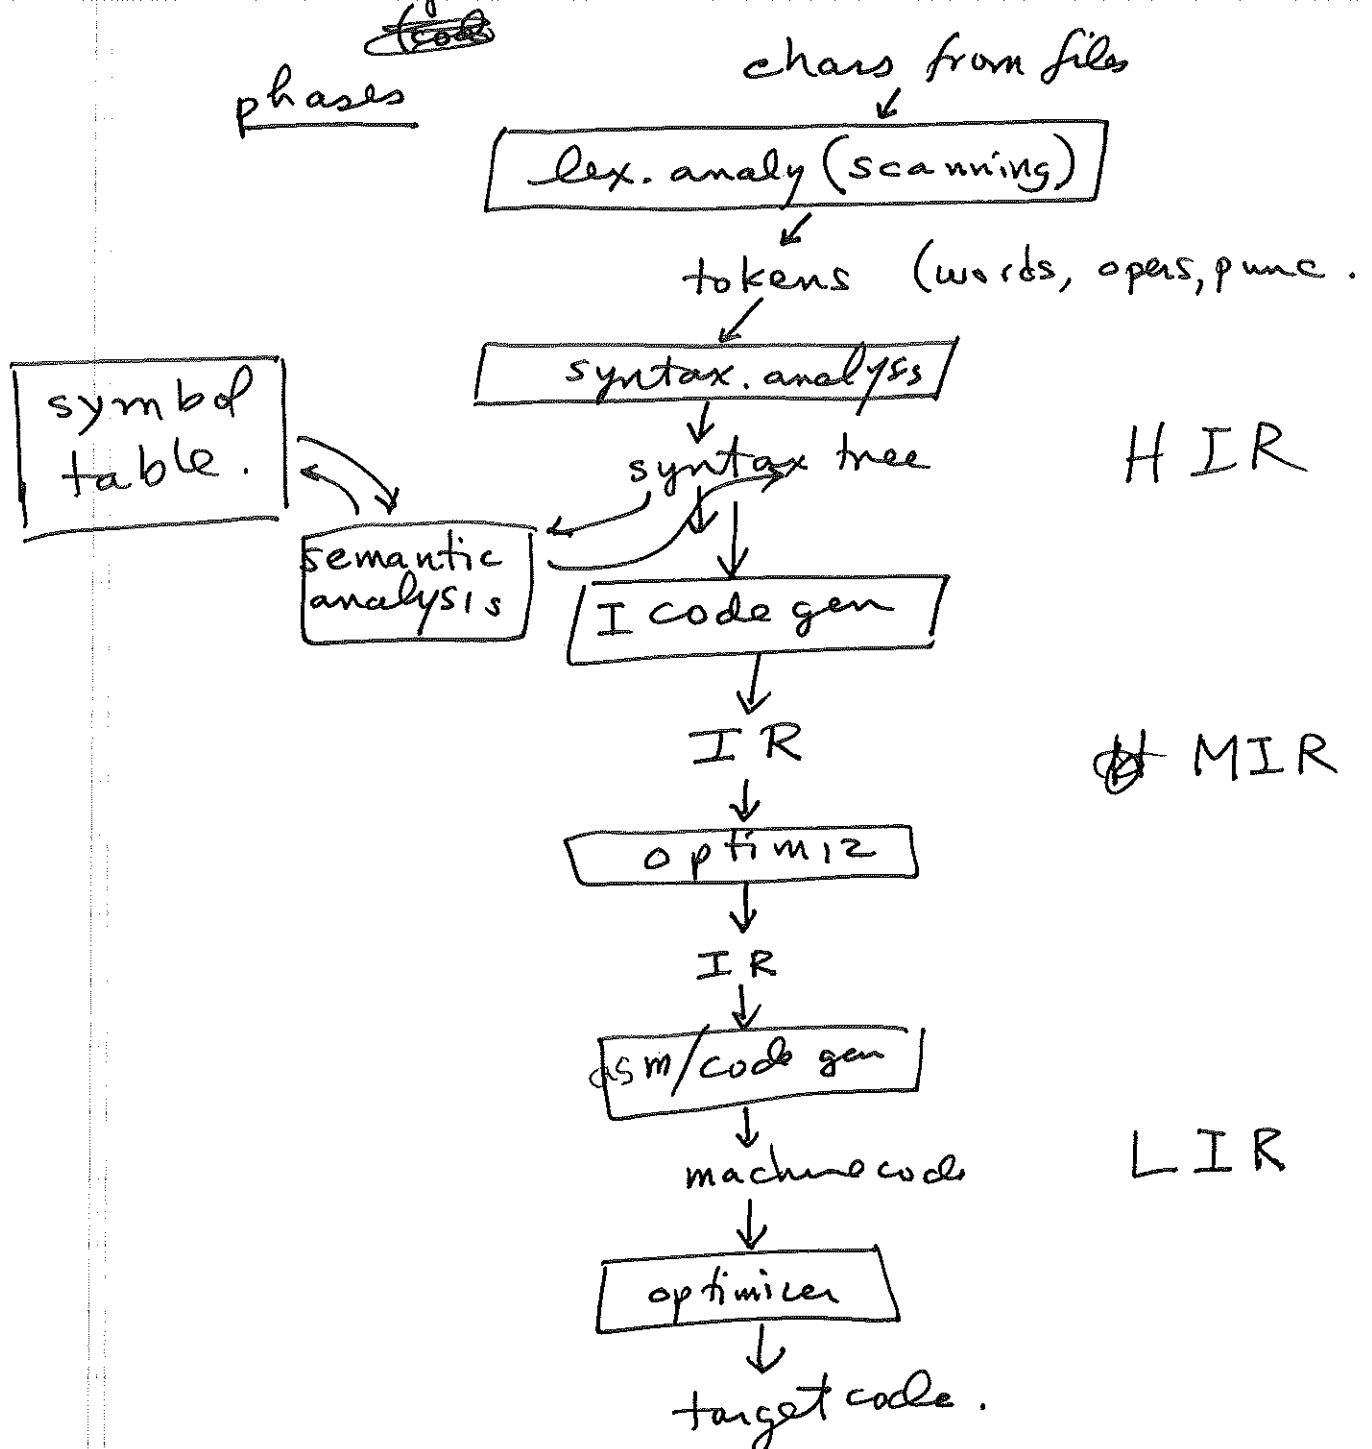 (code
chars from files
phases
lex. analy (scanning)
tokens (words, opers, punc.
syntax. analysis
symbol
table.
syntax tree
HIR
semantic
analysis
I code gen
IR
MIR
optimiz
IR
asm/code gen
machine code
LIR
optimizer
target code.